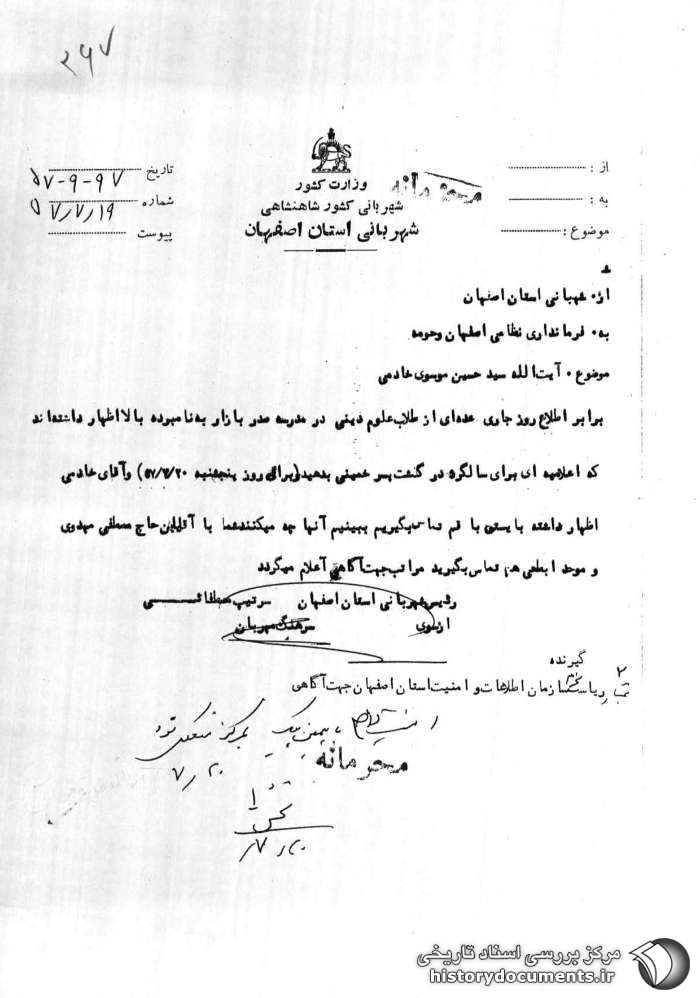 ۲۶۷
محرمانه
وزارت کشور
شهربانی کشور شاهنشاهی
شهربانی استان اصفهان
از :
به :
موضوع :
تاریخ ۵۷-۹-۹۷
شماره ۵۷/۷/۱۹
پیوست
از، شهربانی استان اصفهان
به، فرمانداری نظامی اصفهان وحومه
موضوع، آیت الله سید حسین موسوی خادمی
برابر اطلاع روز جاری عده‌ای از طلاب علوم دینی در مدرسه صدر بازار به نامبرده بالا اظهار داشته‌اند
که اعلامیه ای برای سالگرد در گذشت پسر خمینی بدهید (برای روز پنجشنبه ۵۷/۷/۲۰) وآقای خادمی
اظهار داشته بایستی با قم تماس بگیریم ببینیم آنها چه میکنند شما با آقایان حاج مصطفی مهدوی
و موحد ابطحی هم تماس بگیرید مراتب جهت آگاهی اعلام میگردد
رئیس شهربانی استان اصفهان سرتیپ
ازسوی سرهنگ مهربان
گیرنده
ریاست سازمان اطلاعات و امنیت استان اصفهان جهت آگاهی
بمرکز منعکس شود
۷/۲۰
محرمانه
۷/۲۰
مرکز بررسی اسناد تاریخی
historydocuments.ir